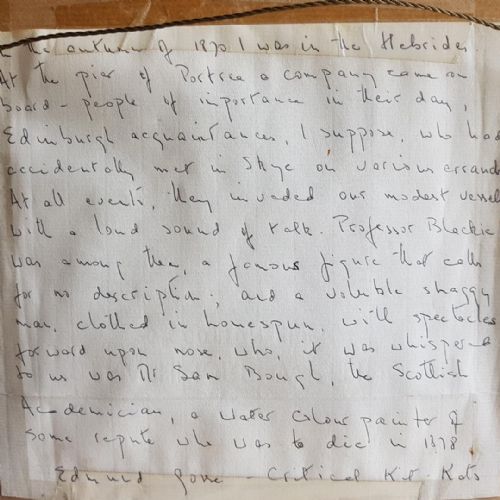 n the autumn of 1870 I was in the Hebrides
At the pier of Portree a company came on
board - people of importance in their day,
Edinburgh acquaintances, I suppose, who had
accidentally met in Skye on various errands
At all events, they invaded our modest vessel
with a loud sound of talk. Professor Blackie
was among them, a famous figure that calls
for no description; and a voluble shaggy
man, clothed in homespun, with spectacles
forward upon nose, who, it was whispered
to us was Mr Sam Bough, the Scottish
Academician, a water colour painter of
some repute who was to die in 1878
Edmund Gosse - Critical Kit-Kats